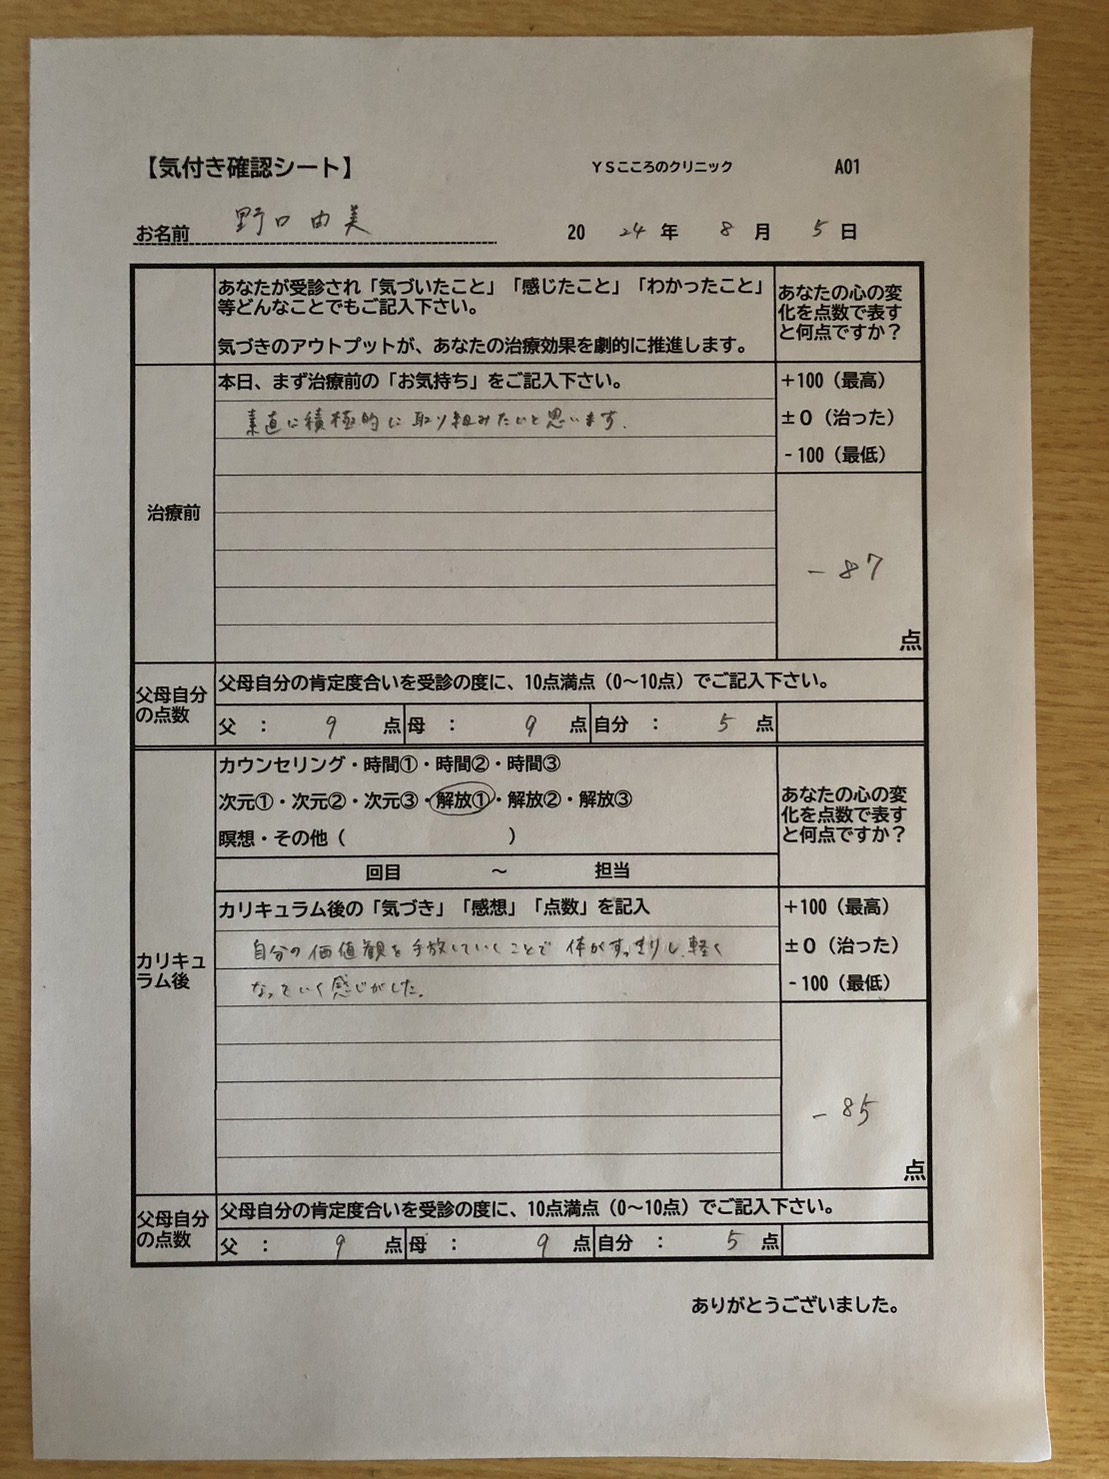 【気付き確認シート】 YSこころのクリニック A01
お名前 野口由美 2024年 8月 5日
あなたが受診され「気づいたこと」「感じたこと」「わかったこと」
等どんなことでもご記入下さい。
気づきのアウトプットが、あなたの治療効果を劇的に推進します。
あなたの心の変
化を点数で表す
と何点ですか？
治療前
本日、まず治療前の「お気持ち」をご記入下さい。
素直に積極的に取り組みたいと思います.
+100（最高）
±0（治った）
-100（最低）
-87
点
父母自分
の点数
父母自分の肯定度合いを受診の度に、10点満点（0～10点）でご記入下さい。
父 ： 9 点 母 ： 9 点 自分 ： 5 点
カリキュ
ラム後
カウンセリング・時間①・時間②・時間③
次元①・次元②・次元③・解放①・解放②・解放③
瞑想・その他（ ）
回目 ～ 担当
あなたの心の変
化を点数で表す
と何点ですか？
カリキュラム後の「気づき」「感想」「点数」を記入
自分の価値観を手放していくことで 体がすっきりし、軽く
なっていく感じがした。
+100（最高）
±0（治った）
-100（最低）
-85
点
父母自分
の点数
父母自分の肯定度合いを受診の度に、10点満点（0～10点）でご記入下さい。
父 ： 9 点 母 ： 9 点 自分 ： 5 点
ありがとうございました。